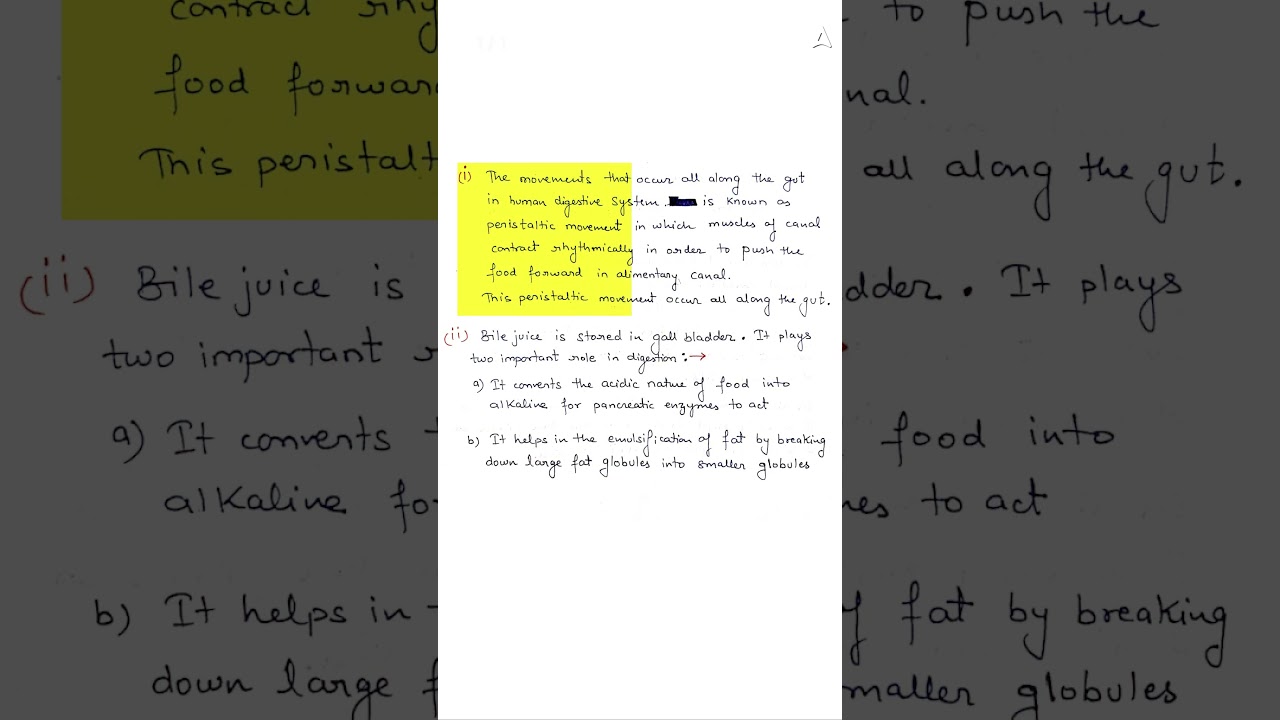 (i) The movements that occur all along the gut
in human digestive system. is known as
peristaltic movement in which muscles of canal
contract rhythmically in order to push the
food forward in alimentary canal.
This peristaltic movement occur all along the gut.
(ii) Bile juice is stored in gall bladder. It plays
two important role in digestion :→
a) It converts the acidic nature of food into
alkaline for pancreatic enzymes to act
b) It helps in the emulsification of fat by breaking
down large fat globules into smaller globules